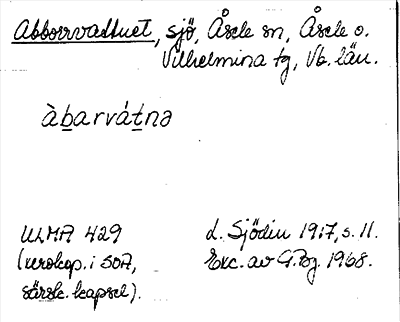 Abborrvadtuet, sjö, Åsele sn, Åsele o.
Vilhelmina tg, Vb. län.
àb̠arvát̠nə
ULMA 429
(xerokop. i SOA,
särsk. kapsel).
L. Sjödin 1917, s. 11.
Exc. av G.Bg. 1968.